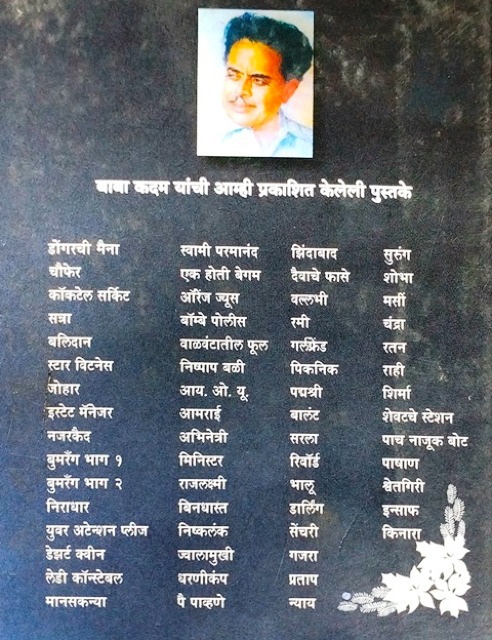 बाबा कदम यांची आम्ही प्रकाशित केलेली पुस्तके
डोंगरची मैना
चौफेर
कॉकटेल सर्किट
सत्रा
बलिदान
स्टार विटनेस
जोहार
इस्टेट मॅनेजर
नजरकैद
बुमरँग भाग १
बुमरँग भाग २
निराधार
युवर अटेन्शन प्लीज
डेझर्ट क्वीन
लेडी कॉन्स्टेबल
मानसकन्या
स्वामी परमानंद
एक होती बेगम
ऑरेंज ज्यूस
बॉम्बे पोलीस
वाळवंटातील फूल
निष्पाप बळी
आय. ओ. यू.
आमराई
अभिनेत्री
मिनिस्टर
राजलक्ष्मी
बिनधास्त
निष्कलंक
ज्वालामुखी
धरणीकंप
पै पाव्हणे
झिंदाबाद
दैवाचे फासे
वल्लभी
रमी
गर्लफ्रेंड
पिकनिक
पद्मश्री
बालंट
सरला
रिवॉर्ड
भालू
डार्लिंग
सेंचरी
गजरा
प्रताप
न्याय
सुरुंग
शोभा
मर्सी
चंद्रा
रतन
राही
शिर्मा
शेवटचे स्टेशन
पाच नाजूक बोट
पाषाण
श्वेतगिरी
इन्साफ
किनारा